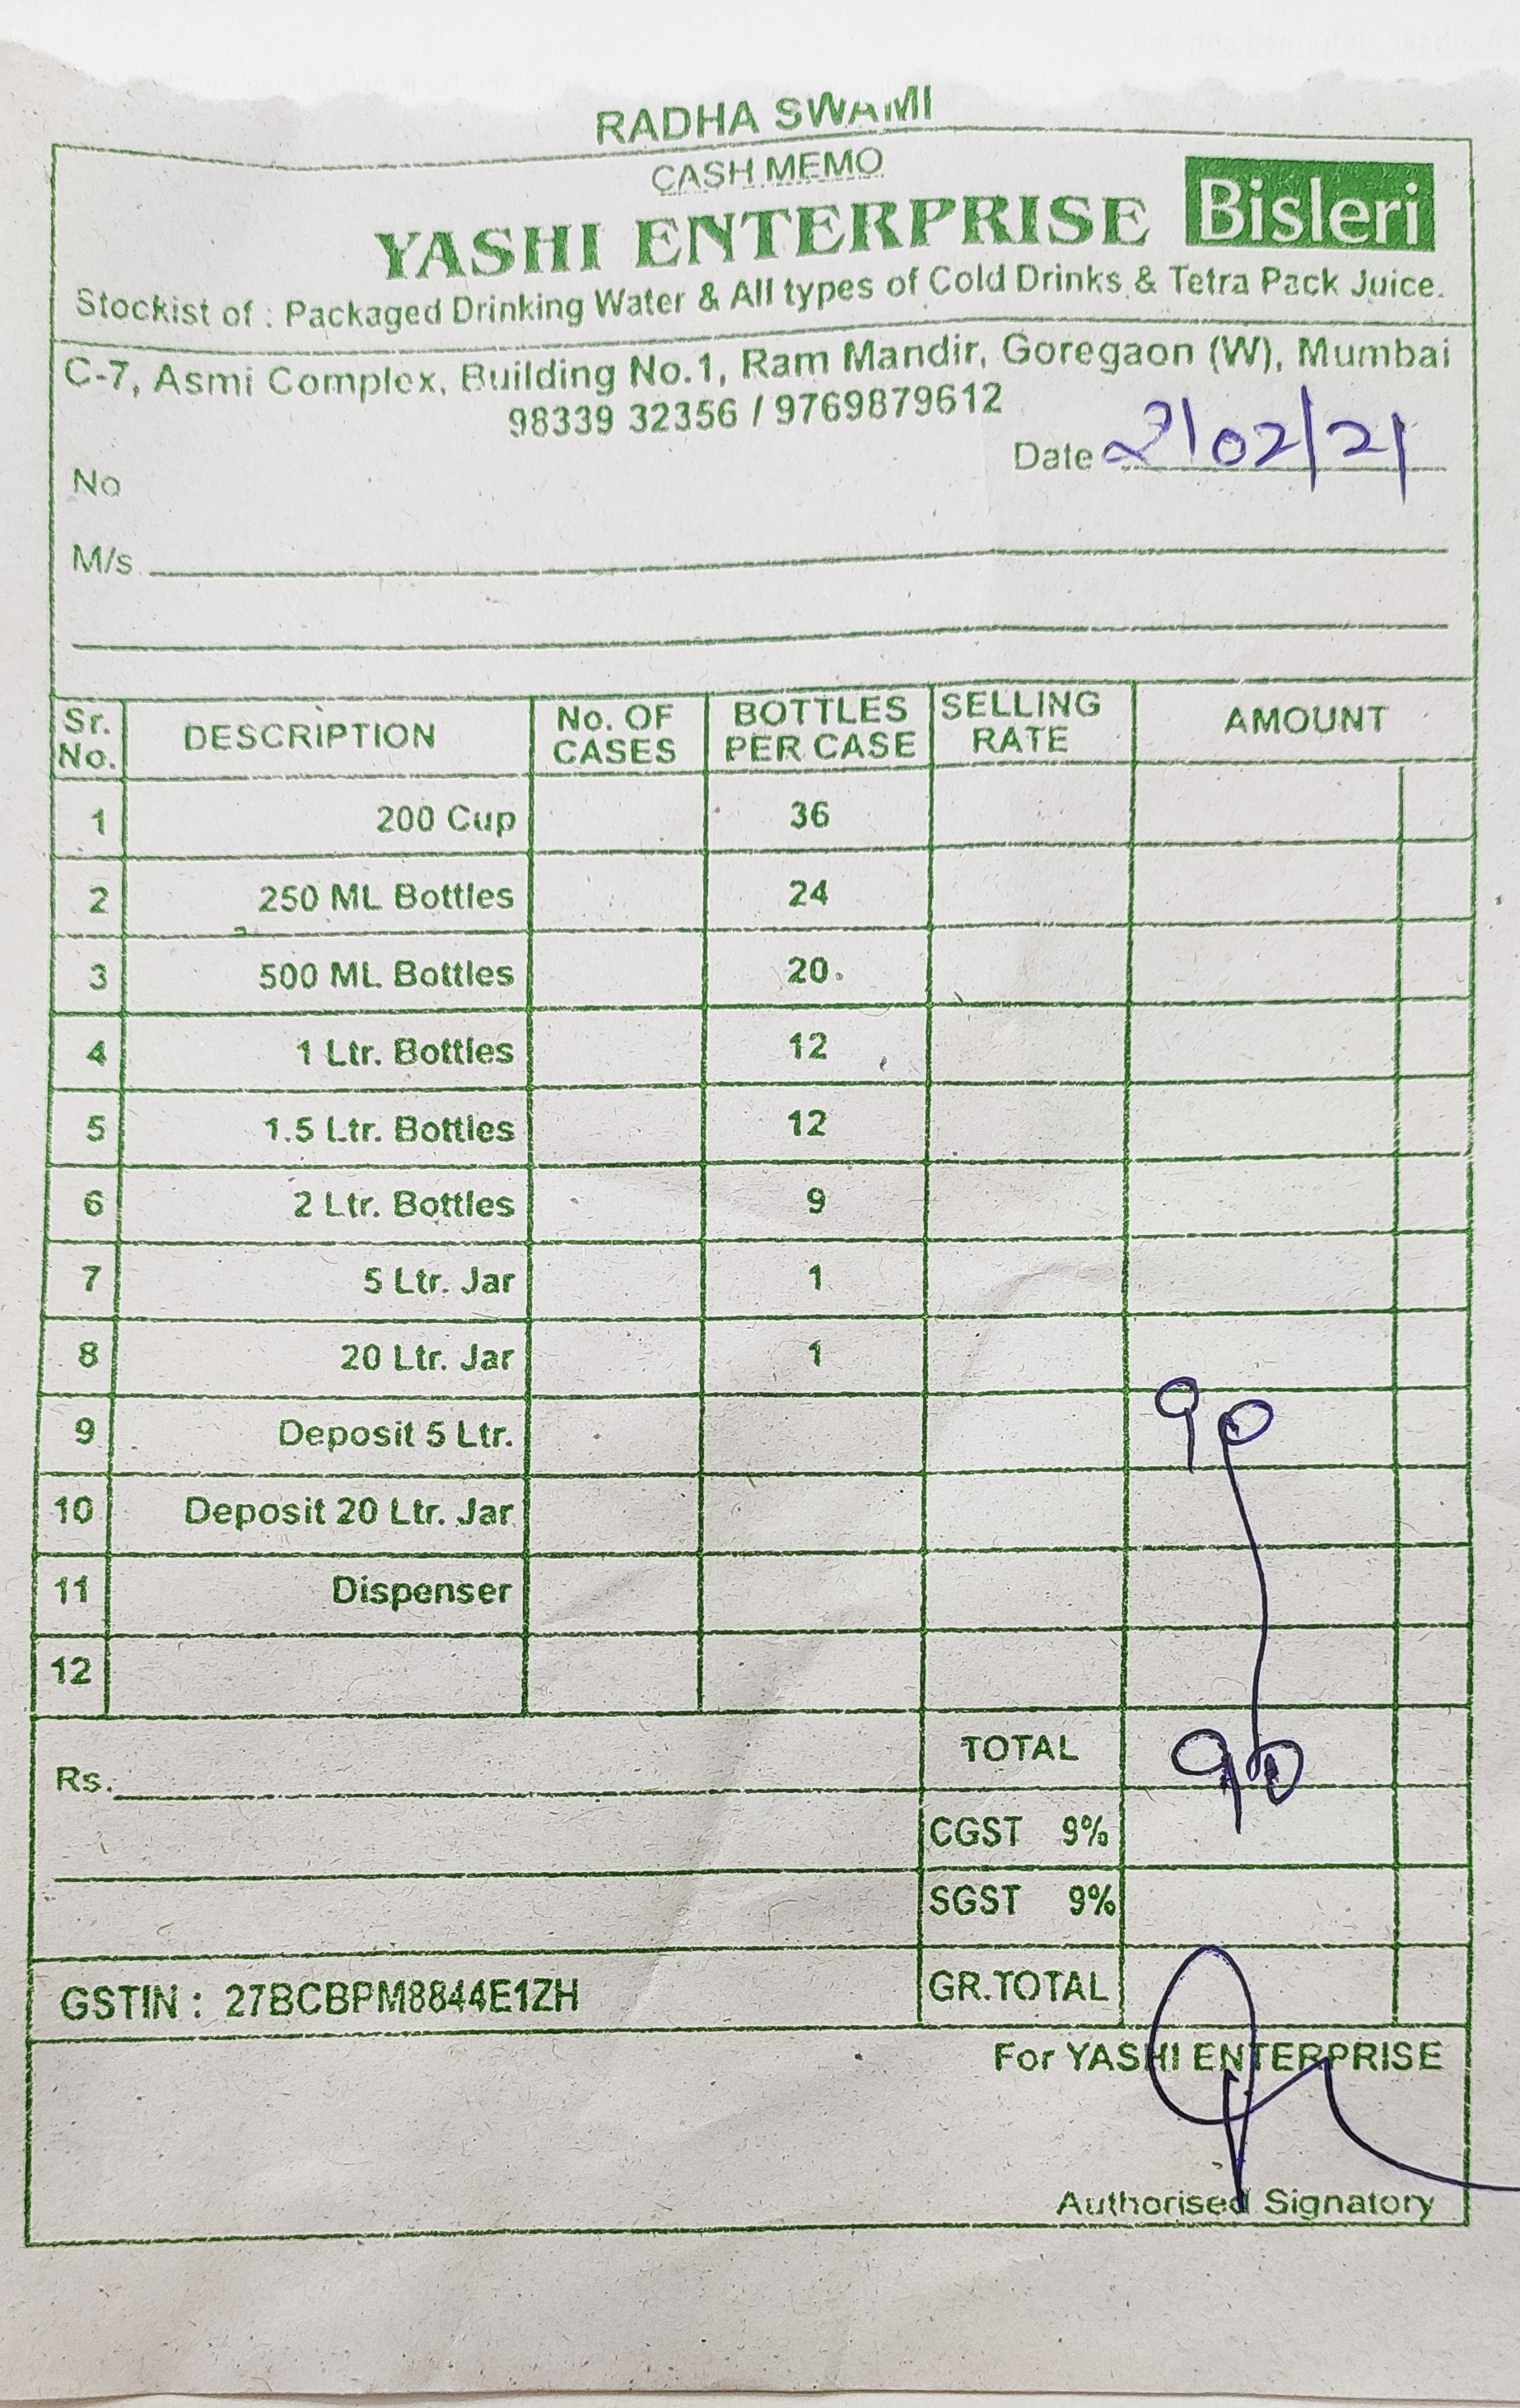 RADHA SWAMI
CASH MEMO
YASHI ENTERPRISE Bisleri
Stockist of : Packaged Drinking Water & All types of Cold Drinks & Tetra Pack Juice.
C-7, Asmi Complex, Building No.1, Ram Mandir, Goregaon (W), Mumbai
98339 32356 / 9769879612
Date 2/02/21
No
M/s.
Sr. No. DESCRIPTION No. OF CASES BOTTLES PER CASE SELLING RATE AMOUNT
1 200 Cup 36
2 250 ML Bottles 24
3 500 ML Bottles 20
4 1 Ltr. Bottles 12
5 1.5 Ltr. Bottles 12
6 2 Ltr. Bottles 9
7 5 Ltr. Jar 1
8 20 Ltr. Jar 1
9 Deposit 5 Ltr. 90
10 Deposit 20 Ltr. Jar
11 Dispenser
12
Rs. TOTAL 90
CGST 9%
SGST 9%
GSTIN : 27BCBPM8844E1ZH GR.TOTAL
For YASHI ENTERPRISE
Authorised Signatory